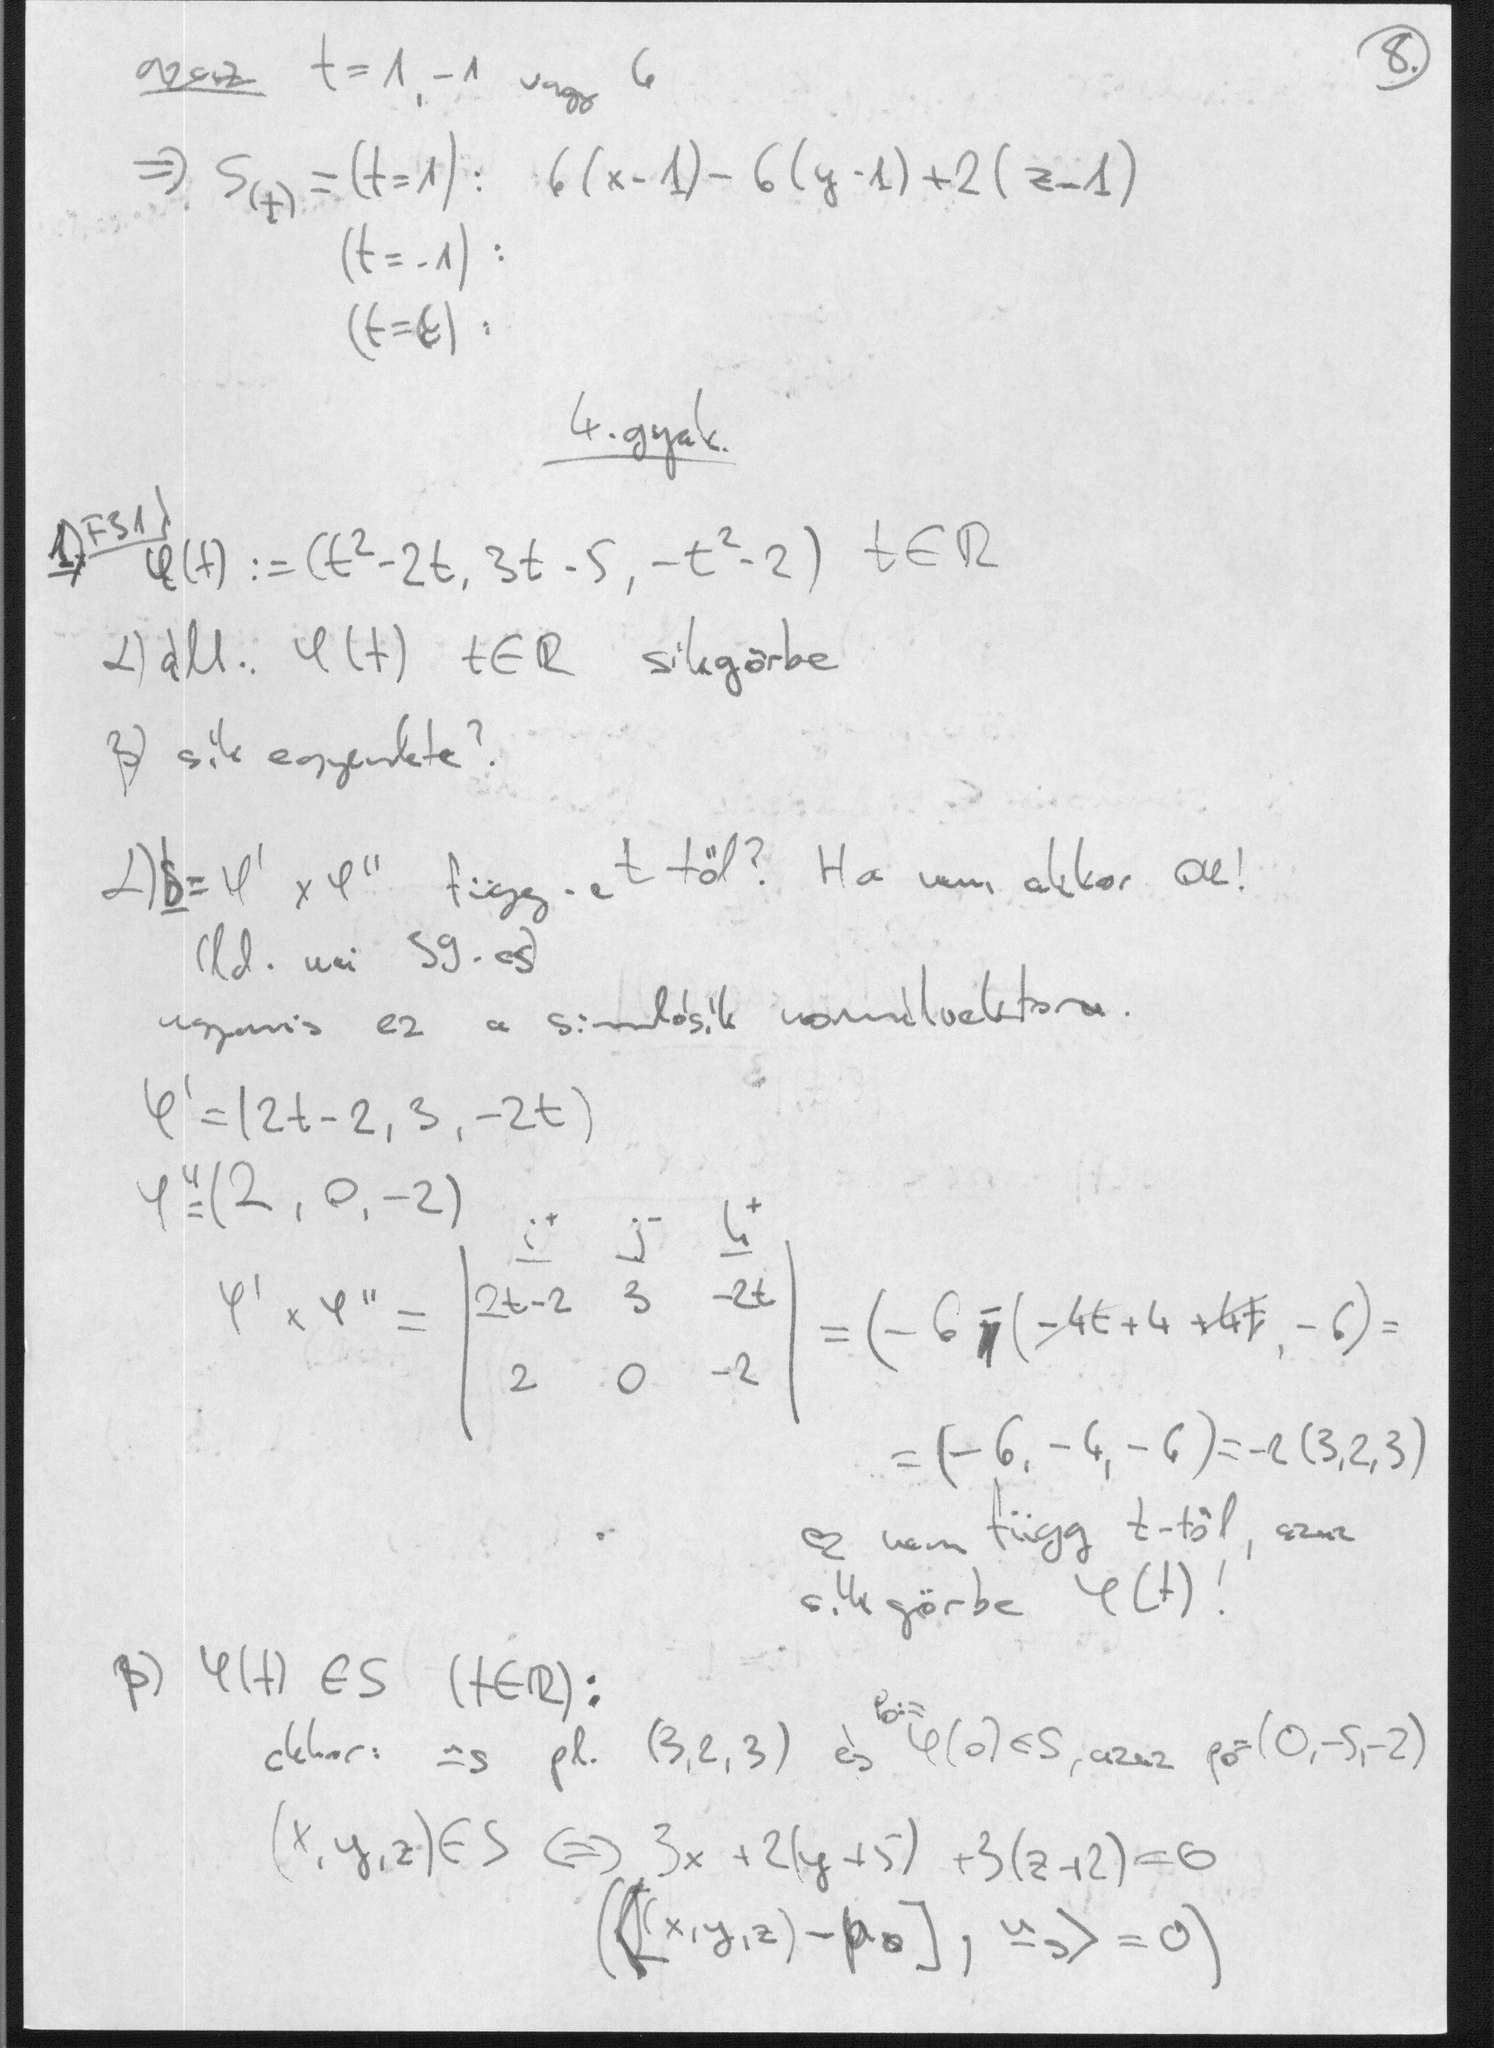 8.
azaz t=1, -1 vagy 6
⇒ S(t) = (t=1): 6(x-1)-6(y-1)+2(z-1)
(t=-1):
(t=6):
4. gyak.
1) F31)
φ(t) := (t²-2t, 3t-5, -t²-2) t∈ℝ
α) áll.: φ(t) t∈ℝ síkgörbe
β) sík egyenlete?
α) b = φ' × φ'' függ-e t től? Ha nem akkor ok!
(ld. mai 39.es)
ugyanis ez a simulósík normálvektora.
φ' = (2t-2, 3, -2t)
φ'' = (2, 0, -2)
i⁺ j⁻ k⁺
φ' × φ'' = | 2t-2 3 -2t | = (-6, -(-4t+4+4t), -6) =
2 0 -2
= (-6, -4, -6) = -2(3,2,3)
ez nem függ t-től, azaz
síkgörbe φ(t)!
β) φ(t) ∈ S (t∈ℝ):
akkor: n_s pl. (3,2,3) és p₀:= φ(0)∈S, azaz p₀=(0,-5,-2)
(x,y,z)∈S ⇔ 3x+2(y+5)+3(z+2)=0
(⟨[(x,y,z)-p₀], n_s⟩=0)